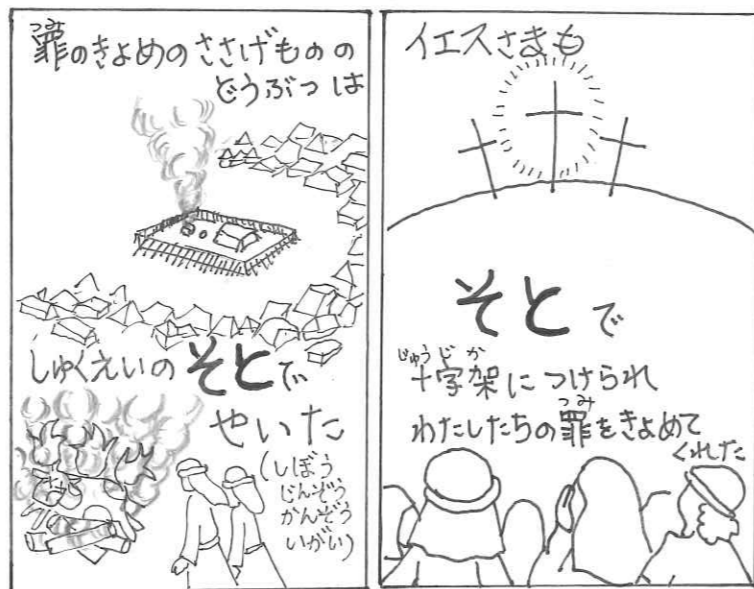 罪のきよめのささげものの
つみ
どうぶつは
しゅくえいの そとで
やいた
(しぼう
じんぞう
かんぞう
いがい)
イエスさまも
そとで
じゅうじか
十字架につけられ
つみ
わたしたちの罪をきよめて
くれた